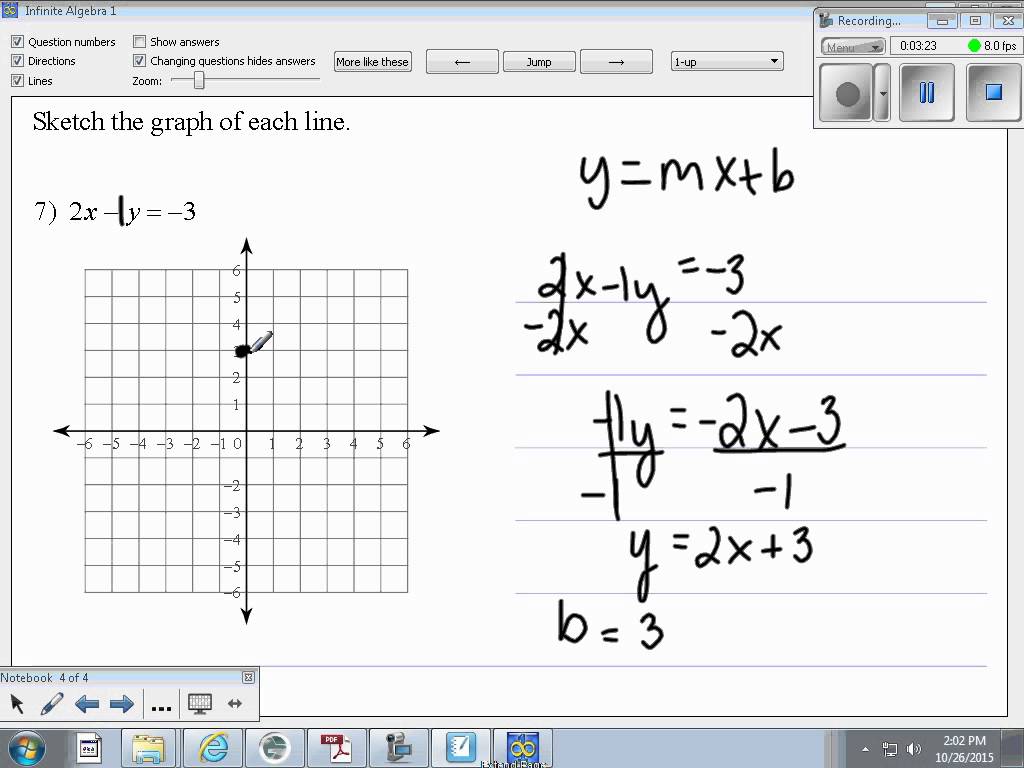 Infinite Algebra 1
Recording...
Question numbers
Show answers
Menu
0:03:23
8.0 fps
Directions
Changing questions hides answers
More like these
←
Jump
→
1-up
Lines
Zoom:
Sketch the graph of each line.
y=mx+b
7) 2x -1y = -3
2x-1y = -3
-2x -2x
-1y = -2x-3
-1 -1
y = 2x+3
b = 3
6
5
4
2
1
-6 -5 -4 -3 -2 -1 0 1 2 3 4 5 6
-2
-3
-4
-5
-6
Notebook 4 of 4
...
PDF
2:02 PM
10/26/2015